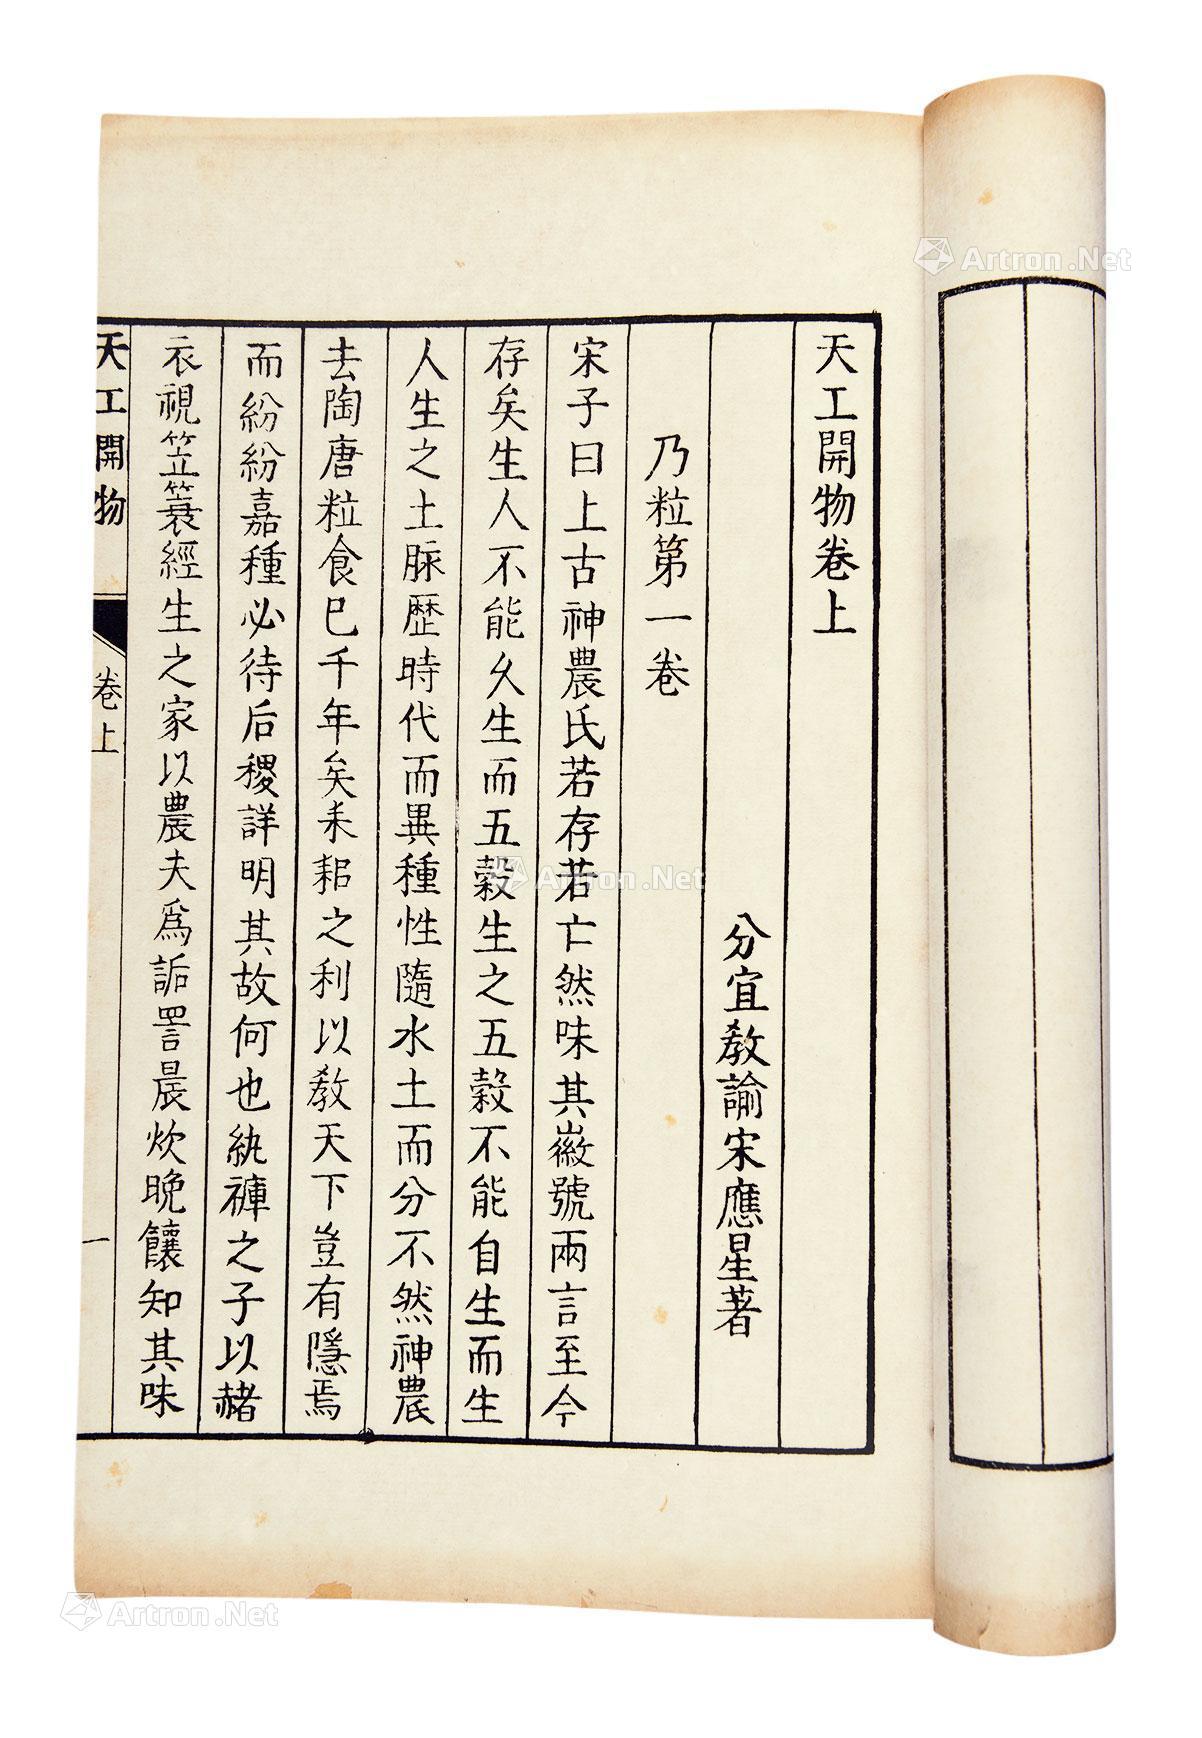 天工開物卷上
分宜敎諭宋應星著
乃粒第一卷
宋子曰上古神農氏若存若亡然味其徽號兩言至今
存矣生人不能久生而五穀生之五穀不能自生而生
人生之土脉歷時代而異種性隨水土而分不然神農
去陶唐粒食已千年矣耒耜之利以敎天下豈有隱焉
而紛紛嘉種必待后稷詳明其故何也紈褲之子以赭
衣視笠簑經生之家以農夫爲詬詈晨炊晚饟知其味
天工開物
卷上
一
Artron.Net
Artron.Net
Artron.Net